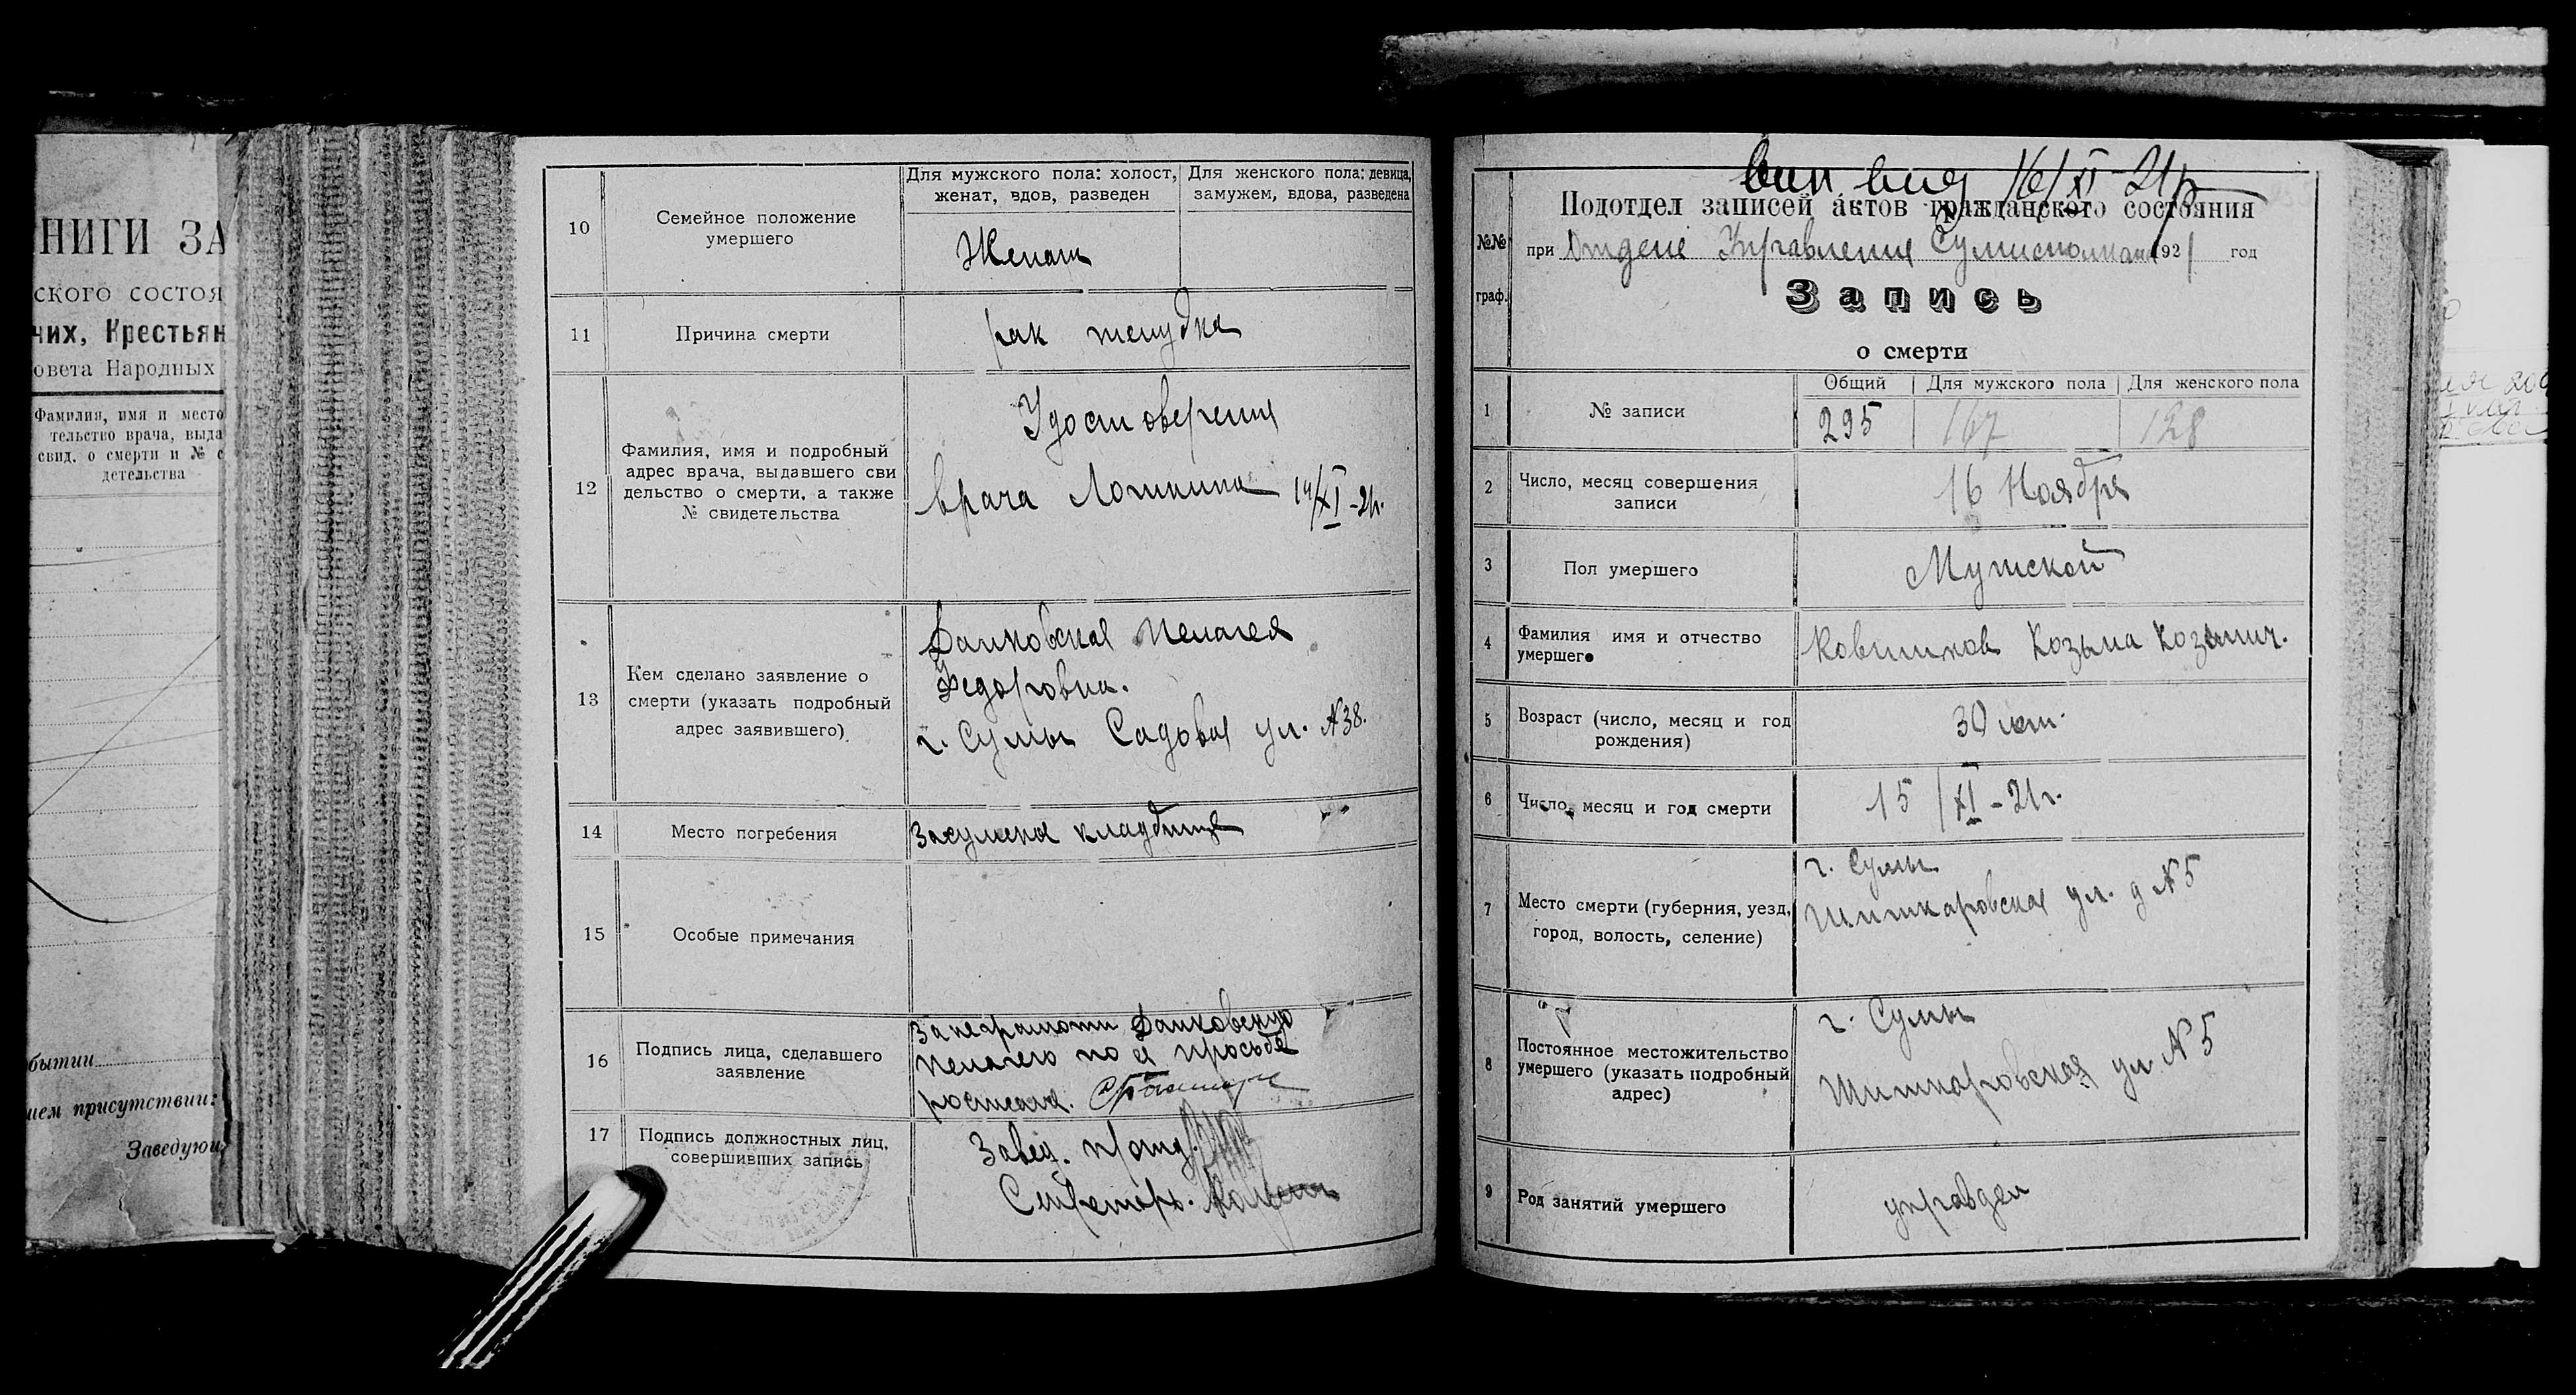 НИГИ ЗА
ского состоя
чих, Крестьян
овета Народных
Фамилия, имя и место
тельство врача, выда
свид. о смерти и № с
детельства
бытии
ием присутствии:
Заведую
10
Семейное положение
умершего
Для мужского пола: холост,
женат, вдов, разведен
Для женского пола: девица,
замужем, вдова, разведена
Женат
11
Причина смерти
рак желудка
12
Фамилия, имя и подробный
адрес врача, выдавшего сви
дельство о смерти, а также
№ свидетельства
Удостоверения
врача 14/XI-21г.
13
Кем сделано заявление о
смерти (указать подробный
адрес заявившего)
Пелагея
Федоровна.
г. Сумы Садовая ул. №38.
14
Место погребения
Засумское кладбище
15
Особые примечания
16
Подпись лица, сделавшего
заявление
За неграмотн
Пелагею по её просьбе
17
Подпись должностных лиц,
совершивших запись
Завед. п/отд.
Секретарь.
вып вид 16/XI-21г
№№
граф.
Подотдел записей актов гражданского состояния
при Отделе Управления Сумисполкома 1921 год
Запись
о смерти
1
№ записи
Общий
Для мужского пола
Для женского пола
295
167
128
2
Число, месяц совершения
записи
16 Ноября
3
Пол умершего
Мужской
4
Фамилия имя и отчество
умершего
Ковшиков Козьма Козьмич.
5
Возраст (число, месяц и год
рождения)
лет.
6
Число, месяц и год смерти
15/XI-21г.
7
Место смерти (губерния, уезд,
город, волость, селение)
г. Сумы
ул. д №5
8
Постоянное местожительство
умершего (указать подробный
адрес)
г. Сумы
ул №5
9
Род занятий умершего
управдел